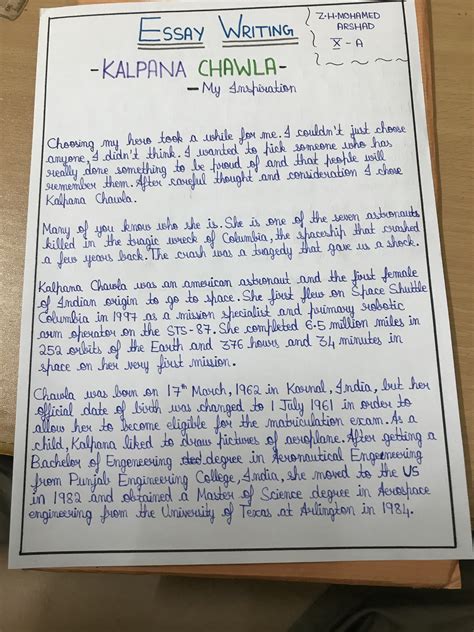 ESSAY WRITING
Z.H.MOHAMED
ARSHAD
X - A
- KALPANA CHAWLA -
- My Inspiration
Choosing my hero took a while for me. I couldn't just choose
anyone, I didn't think. I wanted to pick someone who has
really done something to be proud of and that people will
remember them. After careful thought and consideration I chose
Kalpana Chawla.
Many of you know who she is. She is one of the seven astronauts
killed in the tragic wreck of Columbia, the spaceship that crashed
a few years back. The crash was a tragedy that gave us a shock.
Kalpana Chawla was an american astronaut and the first female
of Indian origin to go to space. She first flew on Space Shuttle
Columbia in 1997 as a mission specialist and primary robotic
arm operator on the STS-87. She completed 6.5 million miles in
252 orbits of the Earth and 376 hours and 34 minutes in
space on her very first mission.
Chawla was born on 17th March, 1962 in Karnal, India, but her
official date of birth was changed to 1 July 1961 in order to
allow her to become eligible for the matriculation exam. As a
child, Kalpana liked to draw pictures of aeroplane. After getting a
Bachelor of Engeneering degree in Aeronautical Engeneering
from Punjab Engineering College, India, she moved to the US
in 1982 and obtained a Master of Science degree in Aerospace
engineering from the University of Texas at Arlington in 1984.